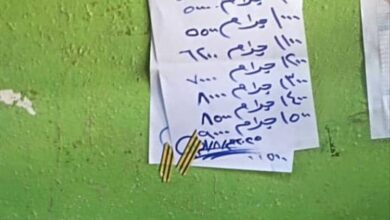 جرام ٥٠٠٠
١٠٠٠ جرام ٥٥٠٠
١١٠٠ جرام ٦٢٠٠
١٢٠٠ جرام ٧٠٠٠
١٣٠٠ جرام ٨٠٠٠
١٤٠٠ جرام ٨٥٠٠
١٥٠٠ جرام ٩٠٠٠